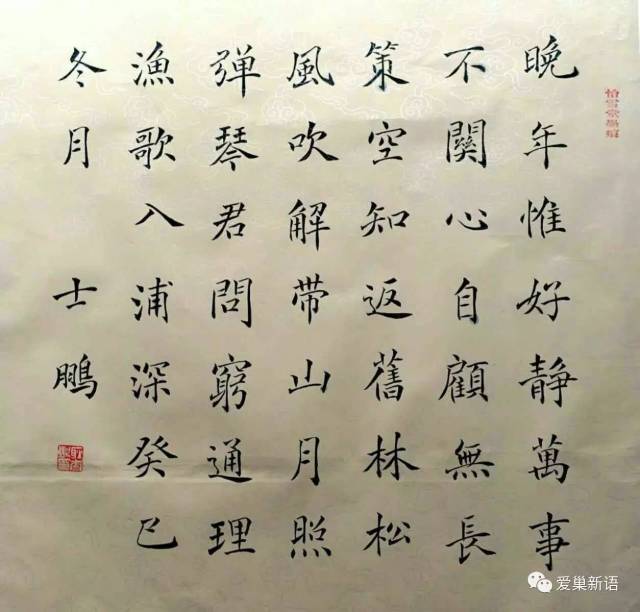 晚年惟好静萬事
不關心自顧無長
策空知返舊林松
風吹解带山月照
弹琴君問窮通理
漁歌入浦深癸巳
冬月 士鵬
爱巢新语